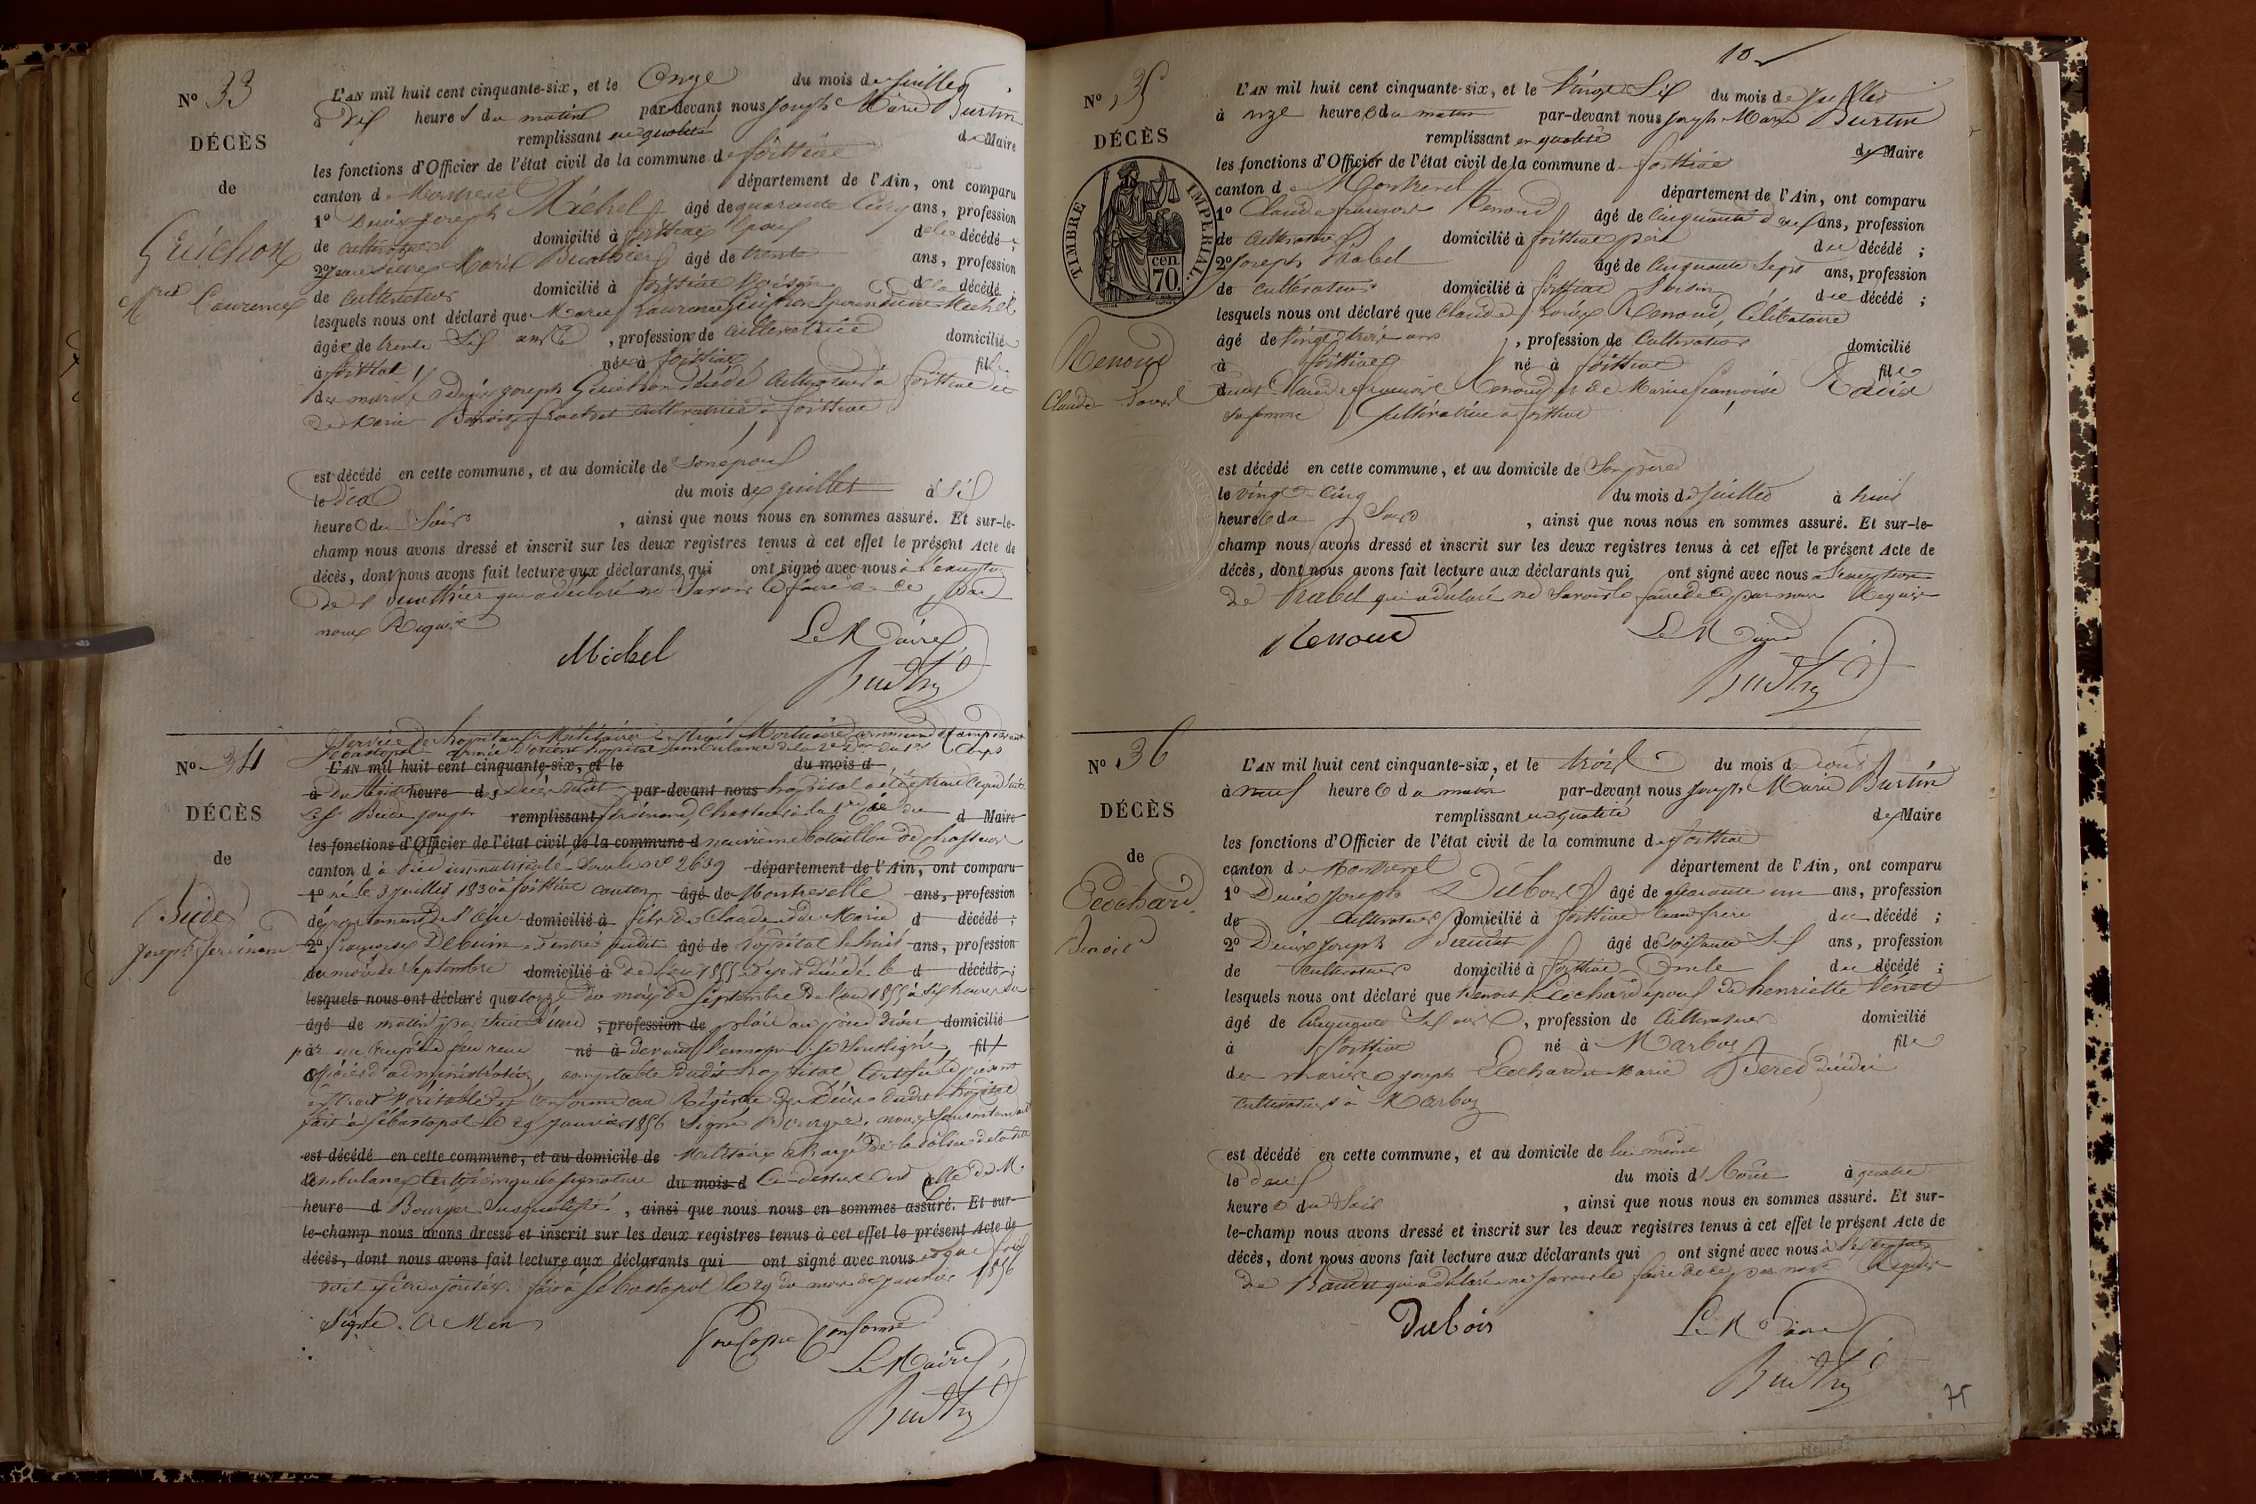 N° 33
DÉCÈS
de
Guichon
Marie Laurence
L'AN mil huit cent cinquante-six, et le onze du mois de juillet
à dix heures du matin par-devant nous Joseph Marie Burtin
remplissant en qualité de Maire
les fonctions d'Officier de l'état civil de la commune de
canton de Montrevel département de l'Ain, ont comparu
1° Denis Joseph Michel âgé de quarante cinq ans, profession
de cultivateur domicilié à époux de la décédée ;
2° Marie âgé de trente ans, profession
de cultivateur domicilié à voisin de la décédée ;
lesquels nous ont déclaré que Marie Laurence Guichon Michel
âgée de trente six ans, profession de cultivatrice domiciliée
à née à fille
des mariés Denis Joseph Guichon décédé cultivateur à et
de Marie cultivatrice à
est décédé en cette commune, et au domicile de son époux
le dix du mois de juillet à six
heures du soir, ainsi que nous nous en sommes assuré. Et sur-le-
champ nous avons dressé et inscrit sur les deux registres tenus à cet effet le présent Acte de
décès, dont nous avons fait lecture aux déclarants qui ont signé avec nous à l'exception
de qui a déclaré ne savoir le faire de ce par
nous Requis
Michel
Le Maire
Burtin
N° 34
DÉCÈS
de
Bude
Joseph Ferdinand
Service des hôpitaux Militaires extrait Mortuaire commune de camp devant
Sébastopol armée d'orient hôpital ambulance de la 2e Don du 1er Corps
L'AN mil huit cent cinquante-six, et le du mois d
à du Registre heure d des décès dudit par-devant nous hopital a été extrait ce qui suit
Le Sr Bude Joseph remplissant Ferdinand Chasseur à la 1re Cie du d Maire
les fonctions d'Officier de l'état civil de la commune d neuvième bataillon de chasseurs
canton d à pied immatriculé sous le no 2639 département de l'Ain, ont comparu
1° né le 3 juillet 1830 à canton âgé de Montrevelle ans, profession
département de l'Ain domicilié à fils de Claude et de Marie d décédé ;
2° entré audit âgé de hôpital le huit ans, profession
du mois de Septembre domicilié à de l'an 1855 y est décédé le d décédé ;
lesquels nous ont déclaré quatorze du mois de septembre de l'an 1855 à six heures du
âgé de matin par suite d'une, profession de plaie au pied droit domicilié
par un coup de feu reçu né à devant l'ennemi. je soussigné fil
officier d'administration comptable dudit hôpital certifie le présent
extrait véritable et conforme au Registre des Décès dudit hôpital
fait à Sébastopol le 29 janvier 1856 signé Bourger. nous
est décédé en cette commune, et au domicile de Militaire chargé de la police de la dite
ambulance certifions que la signature du mois d ci-dessus est celle de Mr
heure d Bourger susqualifié, ainsi que nous nous en sommes assuré. Et sur-
le-champ nous avons dressé et inscrit sur les deux registres tenus à cet effet le présent Acte de
décès, dont nous avons fait lecture aux déclarants qui ont signé avec nous et que foi
doit y être ajoutée. fait à Sébastopol le 29 du mois de janvier 1856
Signé.
Pour Copie Conforme
Le Maire
Burtin
10
N° 35
DÉCÈS
TIMBRE IMPERIAL.
70. cen
Renoud
Claude
L'AN mil huit cent cinquante-six, et le vingt six du mois de juillet
à onze heures du matin par-devant nous Joseph Marie Burtin
remplissant en qualité de Maire
les fonctions d'Officier de l'état civil de la commune d
canton de Montrevel département de l'Ain, ont comparu
1° Claude françois Renoud âgé de cinquante deux ans, profession
de cultivateur domicilié à père du décédé ;
2° Joseph Rabel âgé de cinquante sept ans, profession
de cultivateur domicilié à voisin du décédé ;
lesquels nous ont déclaré que Claude Renoud, célibataire
âgé de vingt trois ans, profession de cultivateur domicilié
à né à fils
de Claude françois Renoud et de Marie françoise
sa femme cultivatrice à
est décédé en cette commune, et au domicile de son père
le vingt cinq du mois de juillet à huit
heures du soir, ainsi que nous nous en sommes assuré. Et sur-le-
champ nous avons dressé et inscrit sur les deux registres tenus à cet effet le présent Acte de
décès, dont nous avons fait lecture aux déclarants qui ont signé avec nous à l'exception
de Rabel qui a déclaré ne savoir le faire de ce par nous Requis
Renoud
Le Maire
Burtin
N° 36
DÉCÈS
de
Pochard
Benoit
L'AN mil huit cent cinquante-six, et le trois du mois d'août
à neuf heures du matin par-devant nous Joseph Marie Burtin
remplissant en qualité de Maire
les fonctions d'Officier de l'état civil de la commune de
canton de Montrevel département de l'Ain, ont comparu
1° Denis Joseph Dubois âgé de quarante un ans, profession
de cultivateur domicilié à beau frère du décédé ;
2° Denis Joseph âgé de soixante six ans, profession
de cultivateur domicilié à oncle du décédé ;
lesquels nous ont déclaré que Benoit Pochard époux de henriette
âgé de cinquante six ans, profession de cultivateur domicilié
à né à Marboz fils
des mariés joseph Pochard et Marie décédés
cultivateurs à Marboz
est décédé en cette commune, et au domicile de lui même
le deux du mois d'Août à quatre
heures du soir, ainsi que nous nous en sommes assuré. Et sur-
le-champ nous avons dressé et inscrit sur les deux registres tenus à cet effet le présent Acte de
décès, dont nous avons fait lecture aux déclarants qui ont signé avec nous à l'exception
de qui a déclaré ne savoir le faire de ce par nous Requis
Dubois
Le Maire
Burtin
75